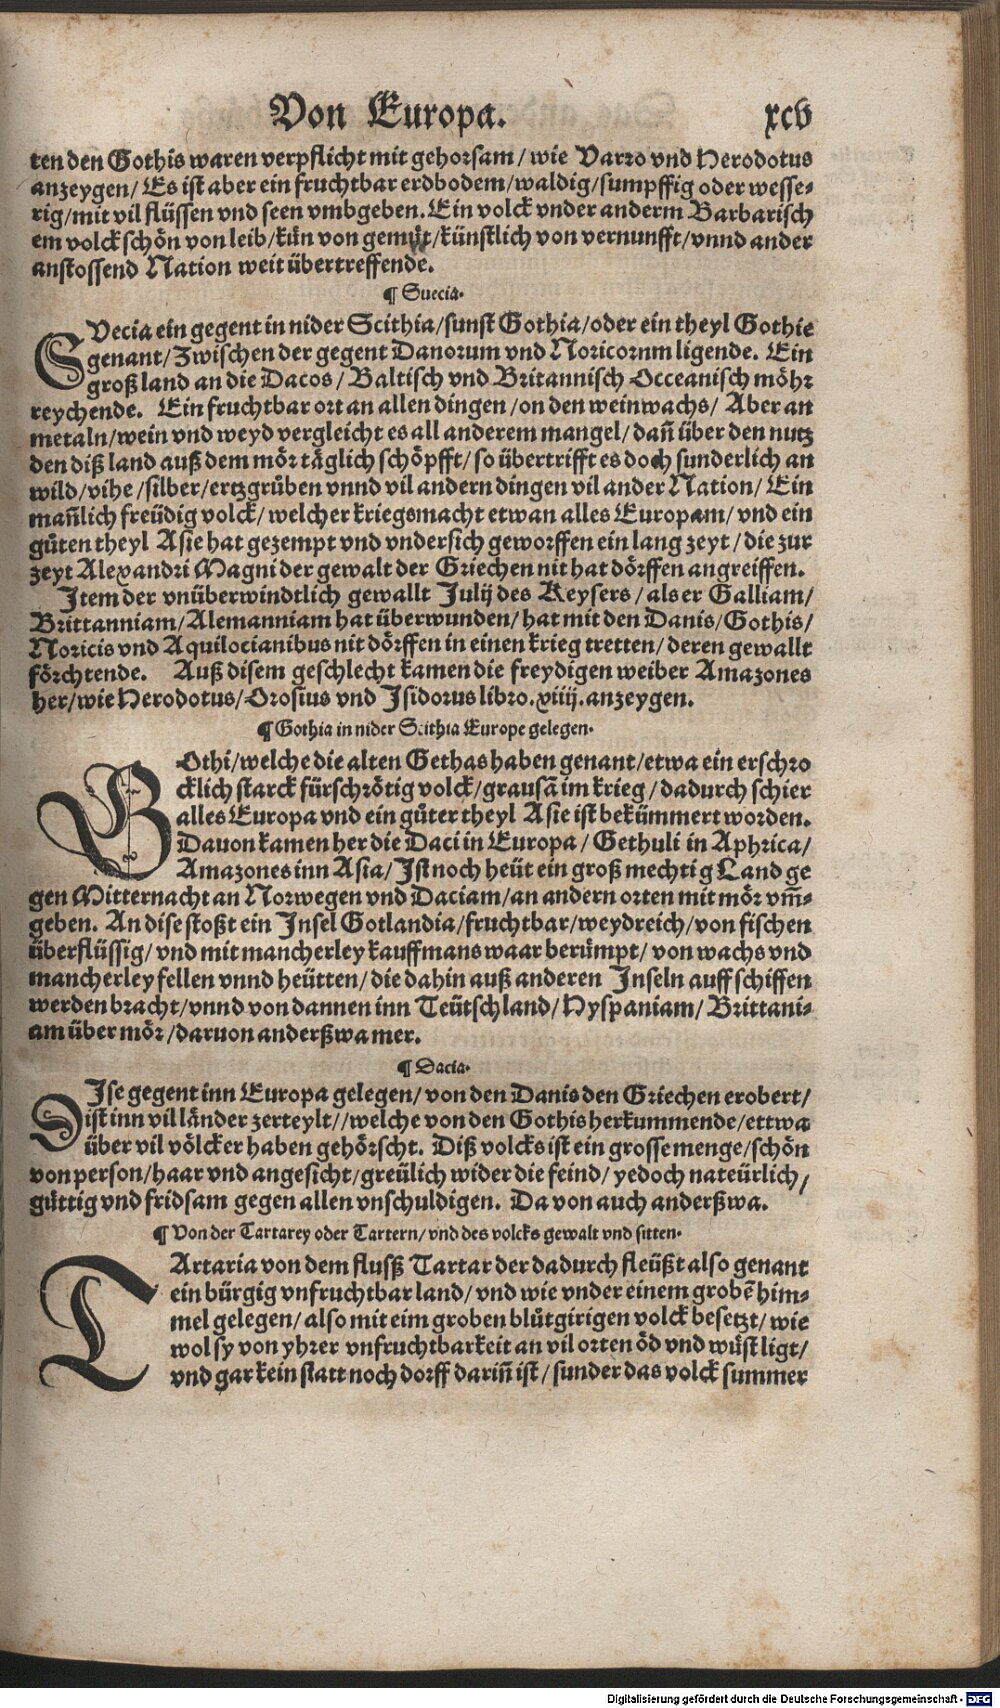 Von Europa. xcv
ten den Gothis waren verpflicht mit gehorsam / wie Varro vnd Herodotus
anzeygen / Es ist aber ein fruchtbar erdbodem / waldig / sumpffig oder wesse-
rig / mit vil flüssen vnd seen vmbgeben. Ein volck vnder anderm Barbarisch
em volck schön von leib / kün von gemüt / künstlich von vernunfft / vnnd ander
anstossend Nation weit übertreffende.
¶ Suecia.
SVecia ein gegent in nider Scithia / sunst Gothia / oder ein theyl Gothie
genant / Zwischen der gegent Danorum vnd Noricornm ligende. Ein
groß land an die Dacos / Baltisch vnd Britannisch Occeanisch möhr
reychende. Ein fruchtbar ort an allen dingen / on den weinwachs / Aber an
metaln / wein vnd weyd vergleicht es all anderem mangel / dañ über den nutz
den diß land auß dem mör täglich schöpfft / so übertrifft es doch sunderlich an
wild / vihe / silber / ertzgrůben vnnd vil andern dingen vil ander Nation / Ein
mañlich freüdig volck / welcher kriegsmacht etwan alles Europam / vnd ein
gůten theyl Asie hat gezempt vnd vndersich geworffen ein lang zeyt / die zur
zeyt Alexandri Magni der gewalt der Griechen nit hat dörffen angreiffen.
Item der vnüberwindtlich gewallt Julij des Keysers / als er Galliam /
Brittanniam / Alemanniam hat überwunden / hat mit den Danis / Gothis /
Noricis vnd Aquilocianibus nit dörffen in einen krieg tretten / deren gewallt
förchtende. Auß disem geschlecht kamen die freydigen weiber Amazones
her / wie Herodotus / Orosius vnd Isidorus libro. xiiij. anzeygen.
¶ Gothia in nider Scithia Europe gelegen.
GOthi / welche die alten Gethas haben genant / etwa ein erschro
cklich starck fürschrötig volck / grausã im krieg / dadurch schier
alles Europa vnd ein gůter theyl Asie ist bekümmert worden.
Dauon kamen her die Daci in Europa / Gethuli in Aphrica /
Amazones inn Asia / Ist noch heüt ein groß mechtig Land ge
gen Mitternacht an Norwegen vnd Daciam / an andern orten mit mör vm̃-
geben. An dise stoßt ein Insel Gotlandia / fruchtbar / weydreich / von fischen
überflüssig / vnd mit mancherley kauffmans waar berümpt / von wachs vnd
mancherley fellen vnnd heütten / die dahin auß anderen Inseln auff schiffen
werden bracht / vnnd von dannen inn Teütschland / Hyspaniam / Brittani-
am über mör / daruon anderßwa mer.
¶ Dacia.
DIse gegent inn Europa gelegen / von den Danis den Griechen erobert /
ist inn vil länder zerteylt / / welche von den Gothis herkummende / ettwa
über vil völcker haben gehörscht. Diß volcks ist ein grosse menge / schön
von person / haar vnd angesicht / greülich wider die feind / yedoch nateürlich /
gůttig vnd fridsam gegen allen vnschuldigen. Da von auch anderßwa.
¶ Von der Tartarey oder Tartern / vnd des volcks gewalt vnd sitten.
TArtaria von dem flusß Tartar der dadurch fleüßt also genant
ein bürgig vnfruchtbar land / vnd wie vnder einem grobẽ him-
mel gelegen / also mit eim groben blůtgirigen volck besetzt / wie
wol sy von yhrer vnfruchtbarkeit an vil orten öd vnd wüst ligt /
vnd gar kein statt noch dorff dariñ ist / sunder das volck summer
Digitalisierung gefördert durch die Deutsche Forschungsgemeinschaft - DFG